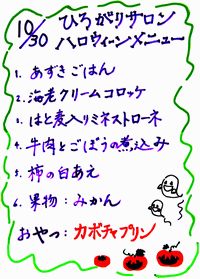 10/30 ひろがりサロン
ハロウィーンメニュー
1. あずきごはん
2. 海老クリームコロッケ
3. はと麦入りミネストローネ
4. 牛肉とごぼうの煮込み
5. 柿の白あえ
6. 果物：みかん
おやつ：カボチャプリン